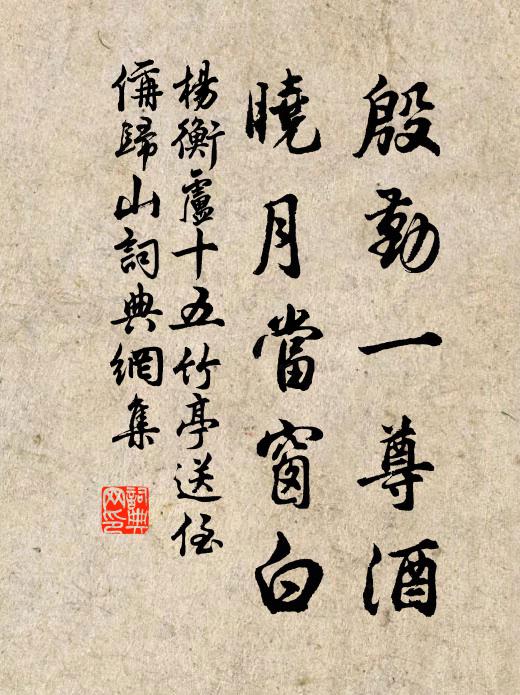 殷勤一尊酒
曉月當窗白
楊衡盧十五竹亭送侄
偁歸山詞典網集
詞典
网印